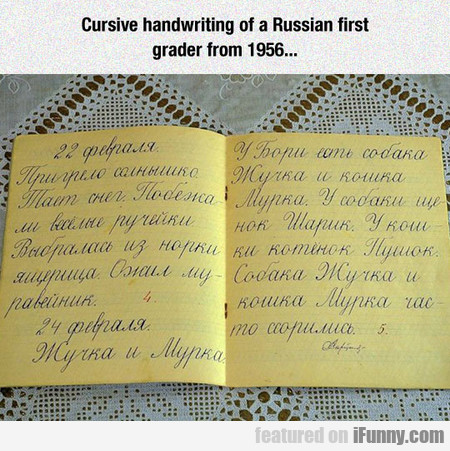 Cursive handwriting of a Russian first
grader from 1956...
22 февраля.
Пригрело солнышко.
Тает снег. Побежа-
ли весёлые ручейки.
Выбралась из норки
ящерица. Ожил му-
равейник. 4.
24 февраля.
Жучка и Мурка.
У Бори есть собака
Жучка и кошка
Мурка. У собаки ще-
нок Шарик. У кош-
ки котёнок Пушок.
Собака Жучка и
кошка Мурка час-
то ссорились. 5.
featured on iFunny.com